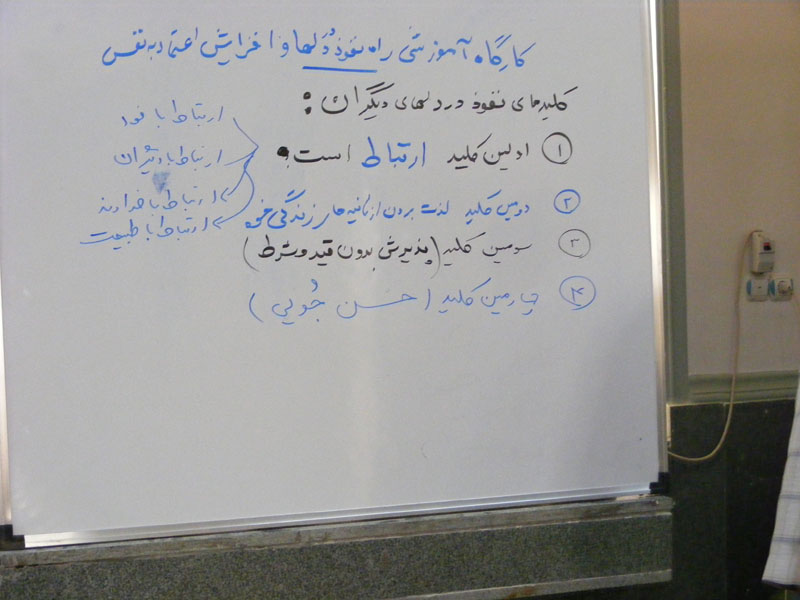 کارگاه آموزشی راه نفوذ دلها و افزایش اعتماد به نفس
کلیدهای نفوذ در دلهای دیگران :
۱ اولین کلید ارتباط است.
ارتباط با خود
ارتباط با دیگران
ارتباط با خداوند
ارتباط با طبیعت
۲ دومین کلید لذت بردن از ثانیه های زندگی خود
۳ سومین کلید (پذیرش بدون قید و شرط)
۴ چهارمین کلید (حسن جُویی)